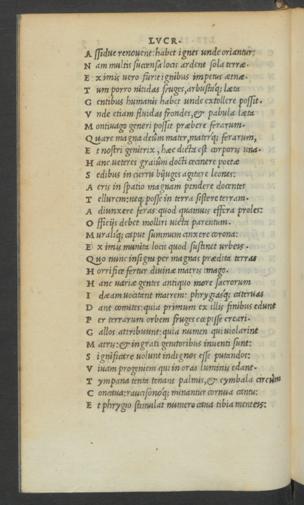 LVCR.
A ssidue renouent: habet ignes unde oriantur:
N am multis succensa locis ardent sola terræ.
E ximis uero furit ignibus impetus ætnæ.
T um porro nitidas fruges, arbustaq; læta
G entibus humanis habet unde extollere possit.
V nde etiam fluidas frondes, & pabula læta
M ontiuago generi possit præbere ferarum.
Q uare magna deûm mater, materq; ferarum,
E t nostri genitrix, hæc dicta est corporis una.
H anc ueteres graiûm docti cecinere poetæ
S edibus in curru biiuges agitare leones:
A eris in spatio magnam pendere docentes
T ellurem; neq; posse in terra sistere terram.
A diunxere feras: quod quamuis effera proles:
O fficijs debet molliri uicta parentum.
M uraliq; caput summum cinxere corona:
E ximis munita locis quod sustinet urbeis.
Q uo nunc insigni per magnas prædita terras
H orrifice fertur diuinæ matris imago.
H anc uariæ gentes antiquo more sacrorum
I dæam uocitant matrem: phrygiasq; cateruas
D ant comites: quia primum ex illis finibus edunt
P er terrarum orbem fruges cœpisse creari.
G allos attribuunt: quia numen qui uiolarint
M atris: & ingrati genitoribus inuenti sunt:
S ignificare uolunt indignos esse putandos:
V iuam progeniem qui in oras luminis edant.
T ympana tenta tonant palmis, & cymbala circum
C oncaua: raucisonoq; minantur cornua cantu:
E t phrygio stimulat numero caua tibia menteis: